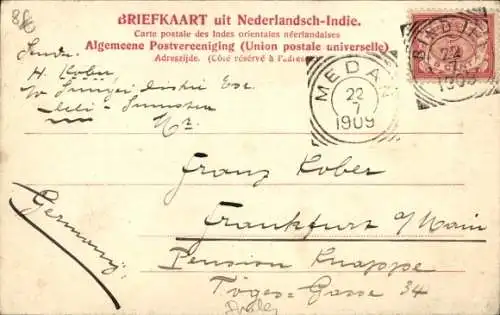 880
BRIEFKAART uit Nederlandsch-Indie.
Carte postale des Indes orientales néerlandaises
Algemeene Postvereeniging (Union postale universelle)
Adreszijde. (Côté réservé à l'adresse)
BINDJEI
22
7
1909
MEDAN
22
7
1909
H. Kober
Deli - Sumatra
Franz Kober
Frankfurt a/Main
Germany
Pension Knappe
Töges-Gasse 34